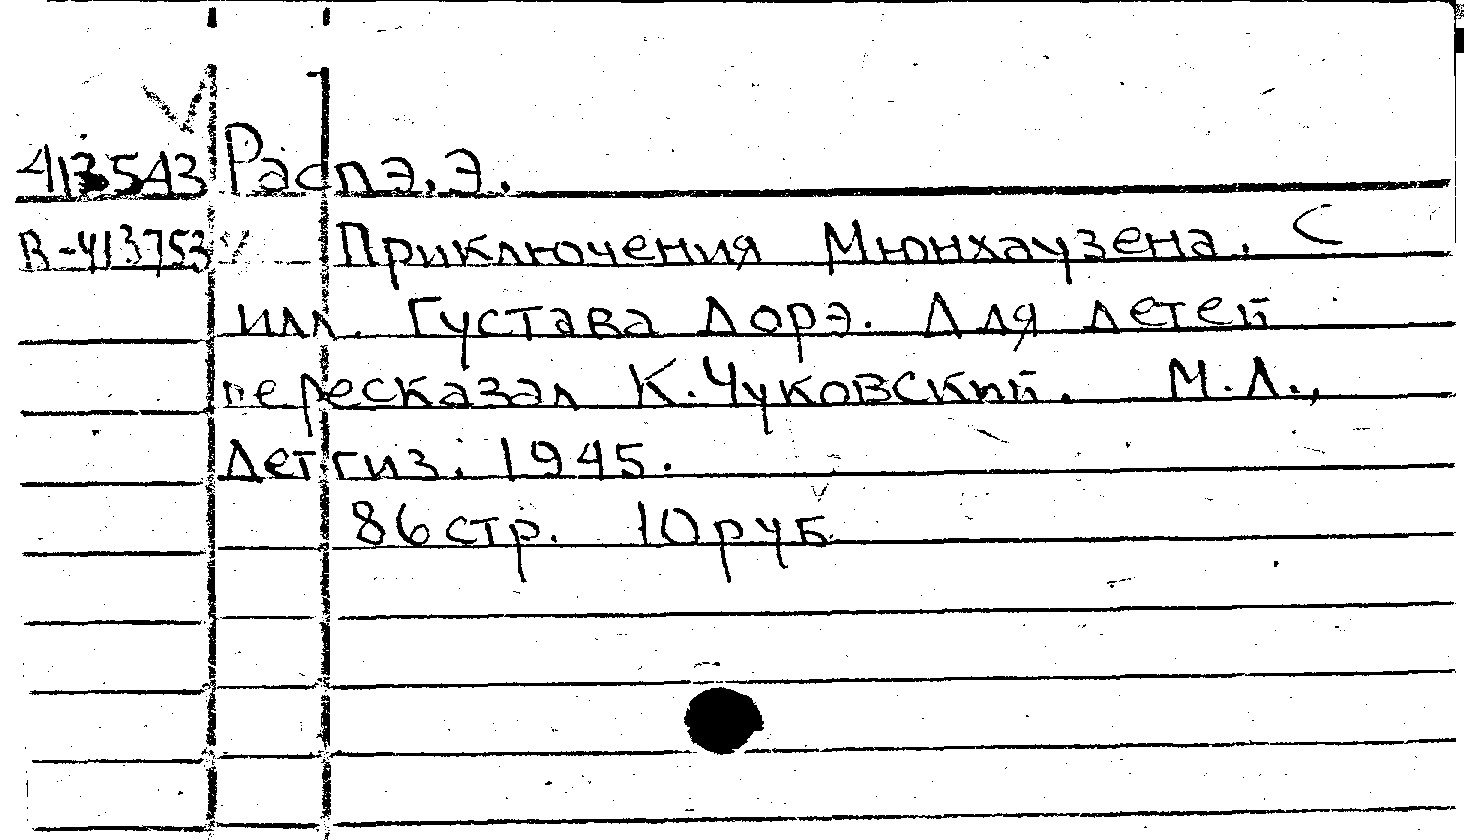 413543 Распэ. Э.
В-413753 Приключения Мюнхаузена. С
илл. Густава Дорэ. Для детей
пересказал К. Чуковский. М.Л.,
Детгиз. 1945.
86 стр. 10 руб.